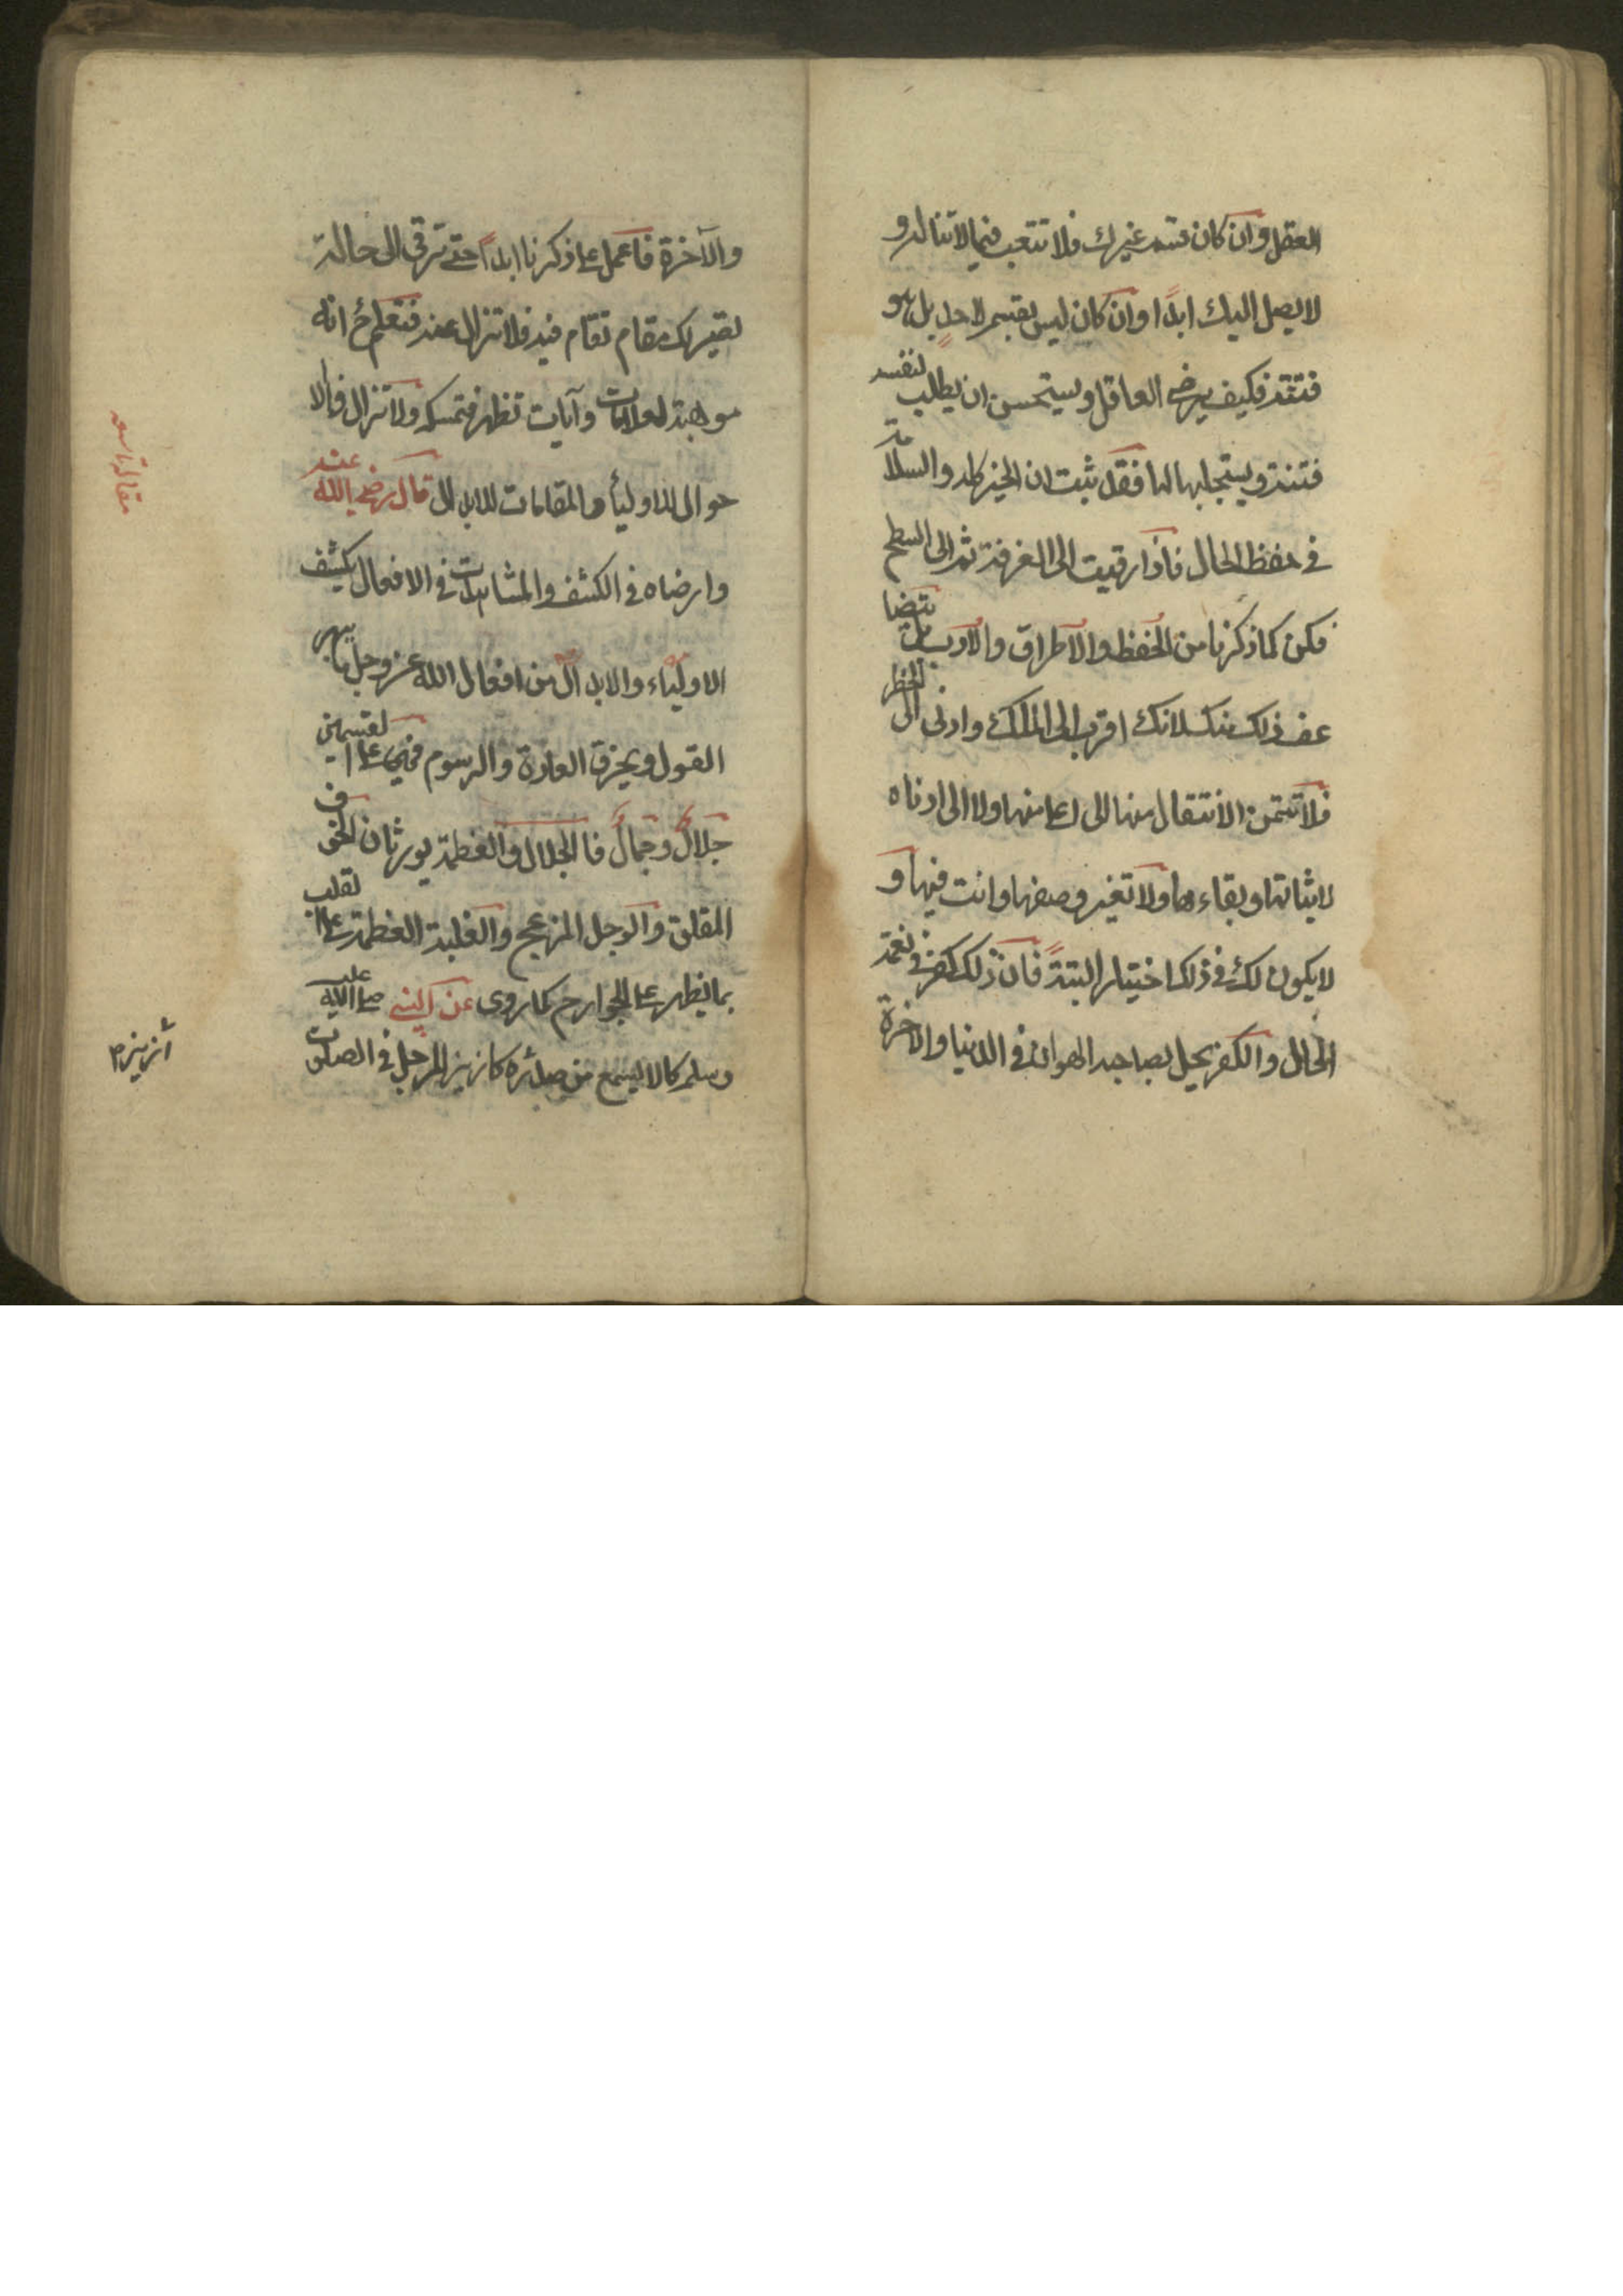 العقل وان كان قسم غيرك فلا تتعب فيما لا تناله و
لا يصل اليك ابدًا وان كان ليس بقسم لاحدٍ بل هو
فتنة فكيف يرضى العاقل ويستحسن ان يطلب لنفسه
فتنة ويستجلبها لها فقد ثبت ان الخير كله والسلامة
في حفظ الحال فاذا رقيت الى الغرفة ثم الى السطح
فكن كما ذكرنا من الحفظ والاطراق والادب بل يتضاعف
ذلك منك لانك اقرب الى الملك وادنى الى الخطر
فلا تتمن الانتقال منها الى اعلى منها ولا الى ادناه
لا يثباتها وبقاءها ولا تغير وصفها وانت فيها و
لا يكون لك في ذلك اختيار البتةً فان ذلك كفر في نعمة
الحال والكفر يحل بصاحبه الهوان في الدنيا والاخرة
والآخرة فاعمل على ما ذكرنا ابداً حتى ترقى الى حالة
تصير لك مقام تقام فيه فلا تزال عنه فتعلم ح انه
موهبة لعلامات وآيات تظهر فتمسكه ولا تزال فالا
حوال للاولياء والمقامات للابدال قال رضي الله عنه
وارضاه في الكشف والمشاهدات في الافعال يكشف
الاولياء والابدال من افعال الله عز وجل ما يبهر
القول ويخرق العادة والرسوم فهي على القسمين
جلالٌ وجمالٌ فالجلال والعظمة يورثان الخوف
المقلق والوجل المزعج والغلبة العظيمة على القلب
بما يظهر على الجوارح كما روى عن النبي صلى الله عليه
وسلم كان يسمع من صدره كازيز المرجل في الصلوت
مقاله تاسعه
ازيز م